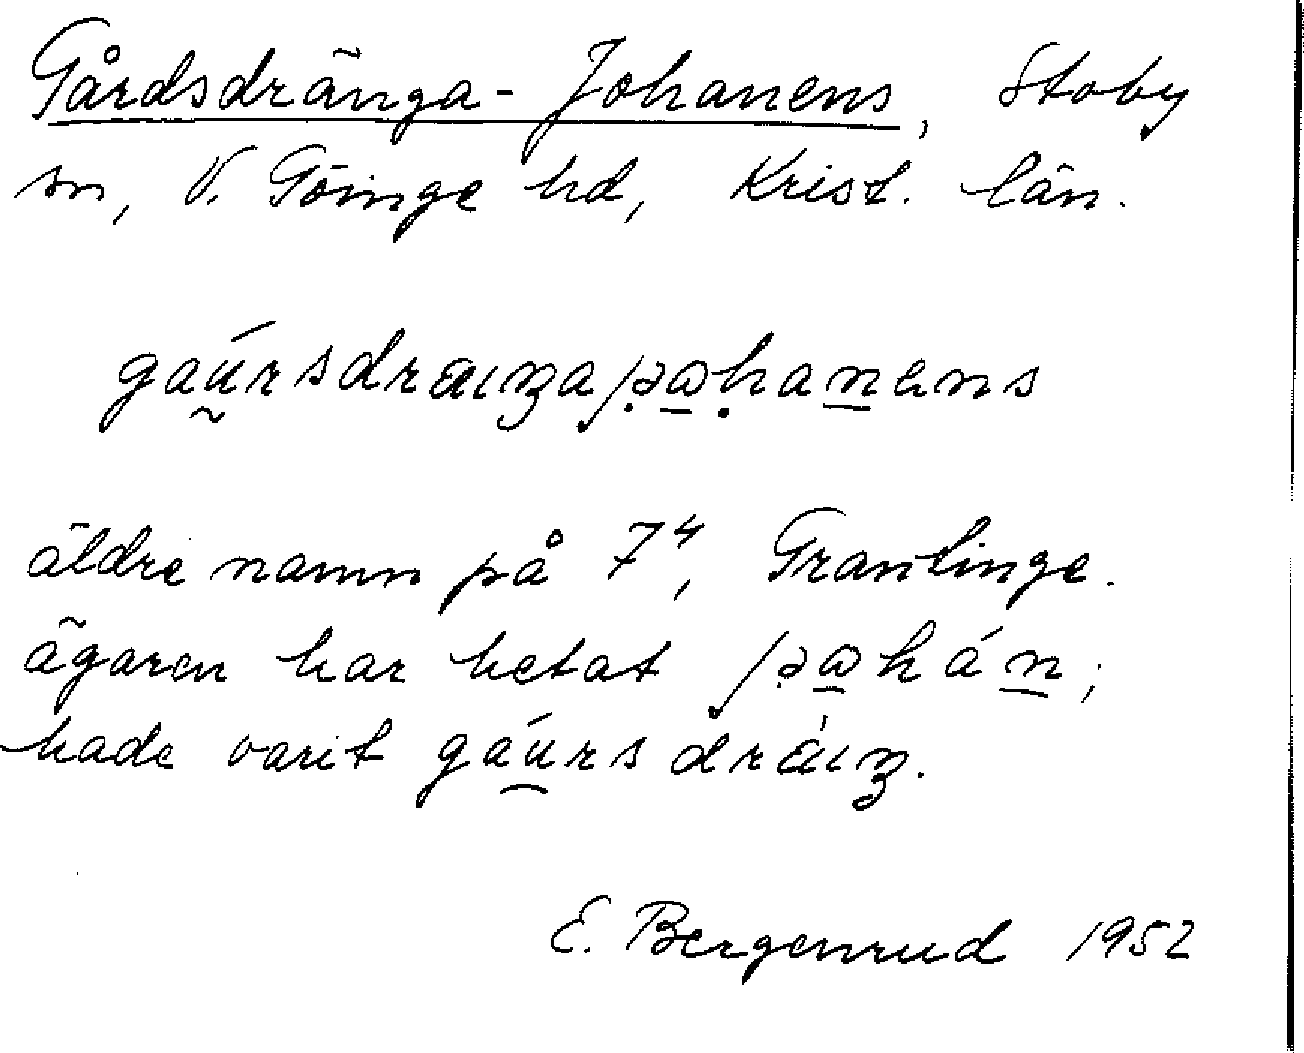 Gårdsdränga-Johanens, Stoby
sn, V. Göinge hd, Krist. län.
äldre namn på 7⁴, Grantinge.
ägaren har hetat
hade varit
E. Bergenrud 1952